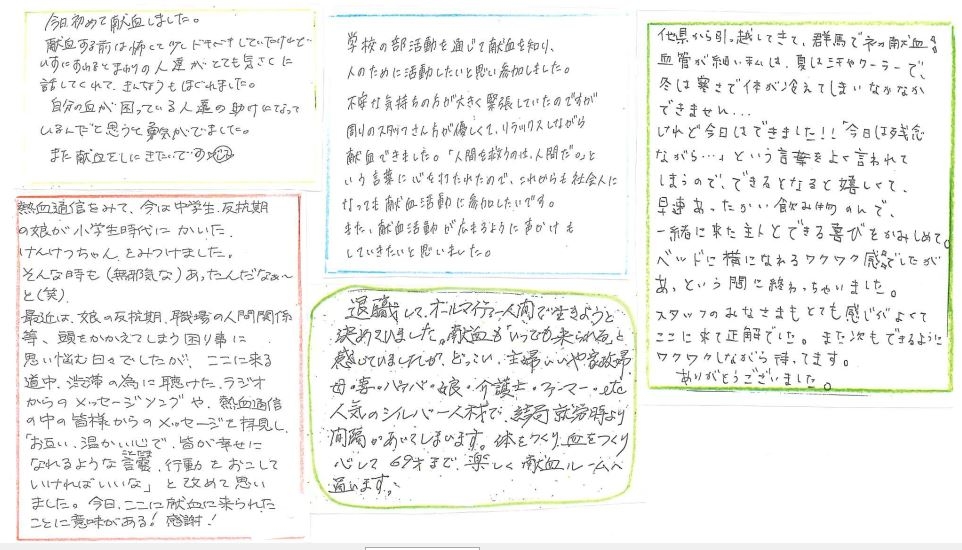 今日初めて献血しました。
献血する前は怖くて少しドキドキしていたけれど
いすにすわるとまわりの人達がとても気さくに
話してくれて、きんちょうもほぐれました。
自分の血が困っている人達の助けになって
いるんだと思うと勇気がでました。
また献血をしにきたいです。
熱血通信をみて、今は中学生、反抗期
の娘が小学生時代にかいた、
けんけつちゃんをみつけました。
そんな時も(無邪気な)あったんだなぁ〜
と(笑)
最近は、娘の反抗期、職場の人間関係
等、頭をかかえてしまう困り事に
思い悩む日々でしたが、ここに来る
道中、渋滞の為に聴けた、ラジオ
からのメッセージソングや、熱血通信
の中の皆様からのメッセージを拝見し、
「お互い、温かい心で、皆が幸せに
なれるような言霊、行動をおこして
いければいいな」と改めて思い
ました。今日、ここに献血に来られた
ことに意味がある!感謝!
学校の部活動を通じて献血を知り、
人のために活動したいと思い参加しました。
不安な気持ちの方が大きく緊張していたのですが
周りのスタッフさん方が優しくて、リラックスしながら
献血できました。「人間を救うのは、人間だ。」と
いう言葉に心を打たれたので、これからも社会人に
なっても献血活動に参加したいです。
また、献血活動が広まるように声がけも
していきたいと思いました。
退職して、オールマイティー人間で生きようと
決めていました。献血も"いつでも来られる"と
感じていましたが、どっこい、主婦いいや家政婦
母・妻・ババ・娘・介護士・ファーマー・etc
人気のシルバー人材で、結局就労時より
間隔があいてしまいます。体をつくり、血をつくり
心して69才まで、楽しく献血ルームへ
通います。
他県から引っ越してきて、群馬で初献血!!
血管が細い私は、夏はニガテクーラーで、
冬は寒さで体が冷えてしまいなかなか
できません...
けれど今日はできました!!「今日は残念
ながら…」という言葉をよく言われて
しまうので、できるとなると嬉しくて、
早速あったかい飲み物のんで、
一緒に来た主人とできる喜びをかみしめて。
ベッドに横になれるワクワク感でしたが
あっという間に終わっちゃいました。
スタッフのみなさまもとても感じがよくて
ここに来て正解でした。また次もできるように
ワクワクしながら待ってます。
ありがとうございました。